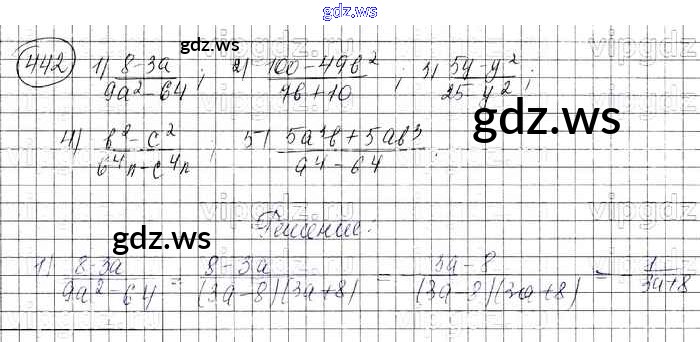 gdz.ws
442 1) (8-3a)/(9a²-64); 2) (100-49b²)/(7b+10); 3) (5y-y²)/(25-y²);
gdz.ws
gdz.ws
4) (b²-c²)/(b⁴n-c⁴n); 5) (5a³b+5ab³)/(a⁴-b⁴).
gdz.ws
Решение:
1) (8-3a)/(9a²-64) = (8-3a)/((3a-8)(3a+8)) = -(3a-8)/((3a-8)(3a+8)) = -1/(3a+8)